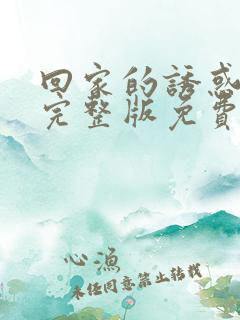 回家的誘惑
完整版免費
心漁
未经同意禁止转载